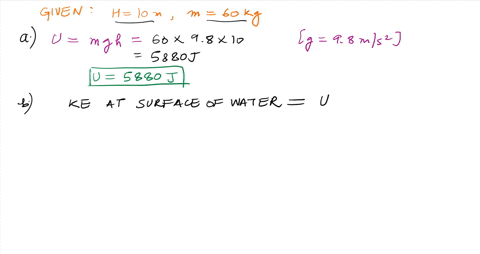 GIVEN: H=10m, m=60kg
a.) U = mgh = 60 × 9.8 × 10 [g=9.8m/s²]
= 5880J
U = 5880J
b) KE AT SURFACE OF WATER = U